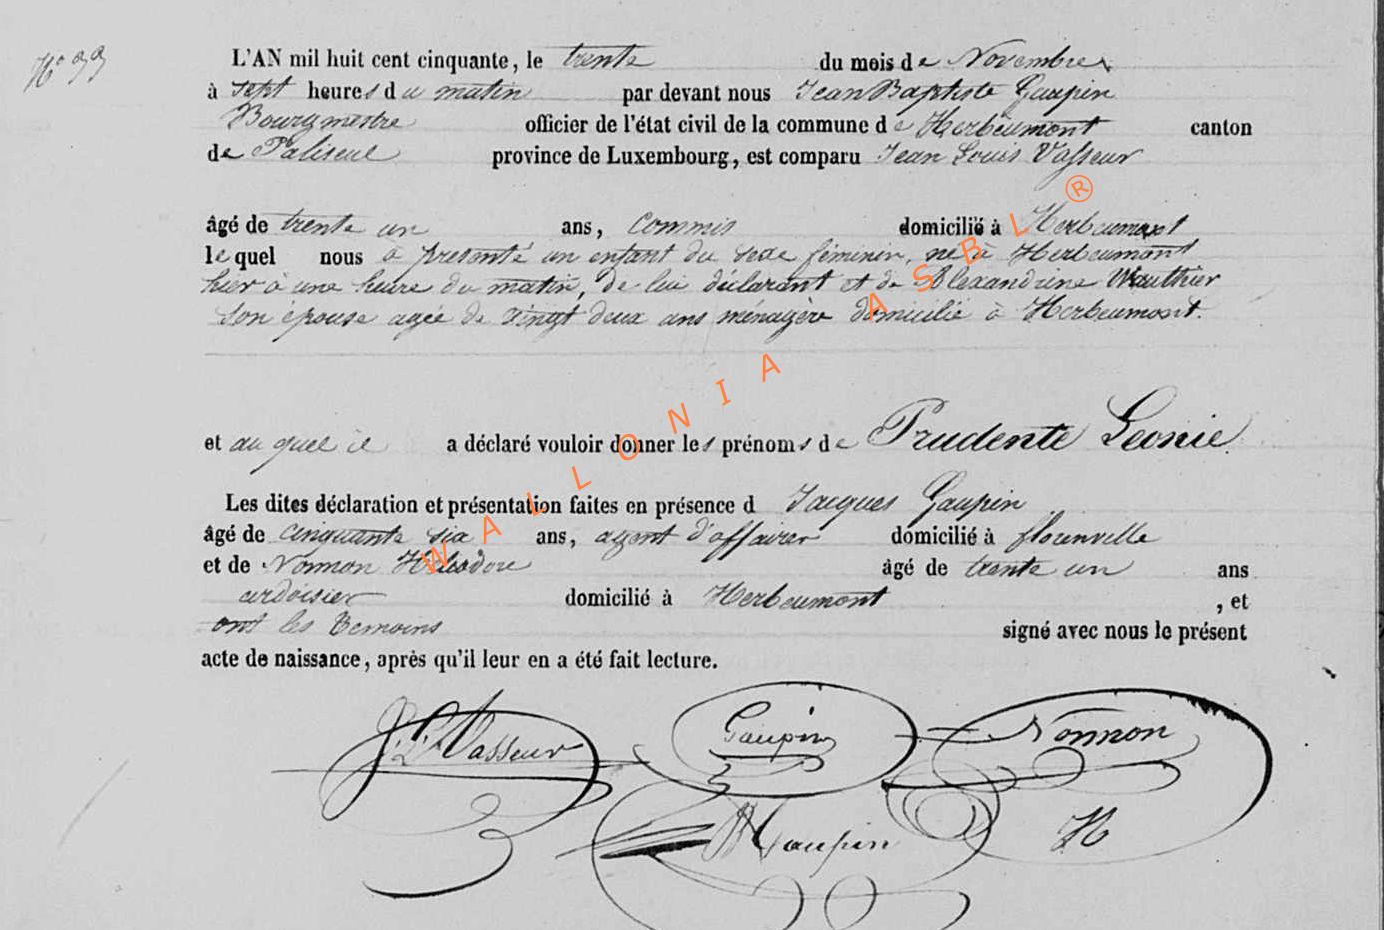 N° 33
L'AN mil huit cent cinquante, le trente du mois de Novembre
à sept heures du matin par devant nous Jean Baptiste Gaupin
Bourgmestre officier de l'état civil de la commune de Herbeumont canton
de Paliseul province de Luxembourg, est comparu Jean Louis Vasseur
âgé de trente un ans, commis domicilié à Herbeumont
lequel nous a presenté un enfant du sexe féminin, né à Herbeumont
hier à une heure du matin, de lui déclarant et de Alexandrine Wauthier
son épouse agée de vingt deux ans ménagère domicilié à Herbeumont.
et au quel il a déclaré vouloir donner les prénoms de Prudente Leonie
Les dites déclaration et présentation faites en présence d Jacques Gaupin
âgé de cinquante six ans, agent d'affairer domicilié à florenville
et de Nonnon Heliodore âgé de trente un ans
ardoisier domicilié à Herbeumont, et
ont les temoins signé avec nous le présent
acte de naissance, après qu'il leur en a été fait lecture.
J. L. Vasseur Gaupin Nonnon
Gaupin H
WALLONIA ASBL ®